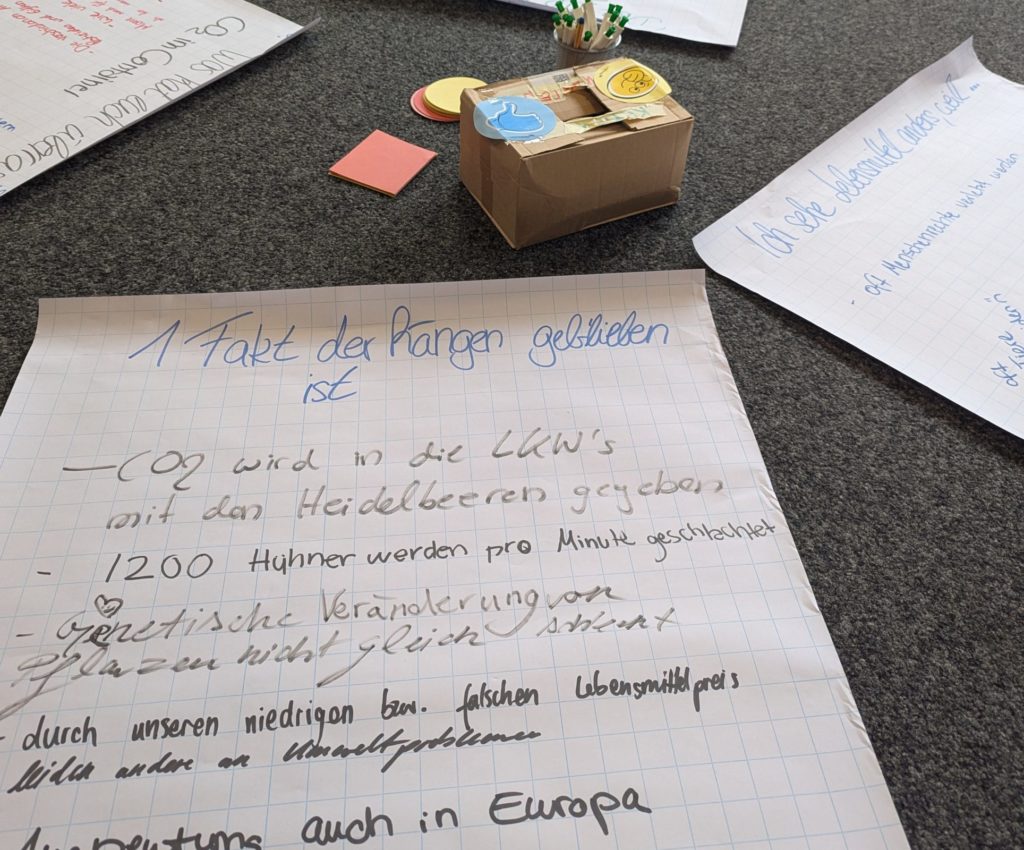 CO2 im Container
Was hat dich überra
Ich sehe Lebensmittel anders, weil ...
- oft Menschenrechte verletzt werden
1 Fakt der hängen geblieben
ist
— CO2 wird in die LKW's
mit den Heidelbeeren gegeben
- 1200 Hühner werden pro Minute geschlachtet
- Genetische Veränderung von
Pflanzen nicht gleich schlecht
- durch unseren niedrigen bzw. falschen Lebensmittelpreis
leiden andere an Umweltproblemen
auch in Europa